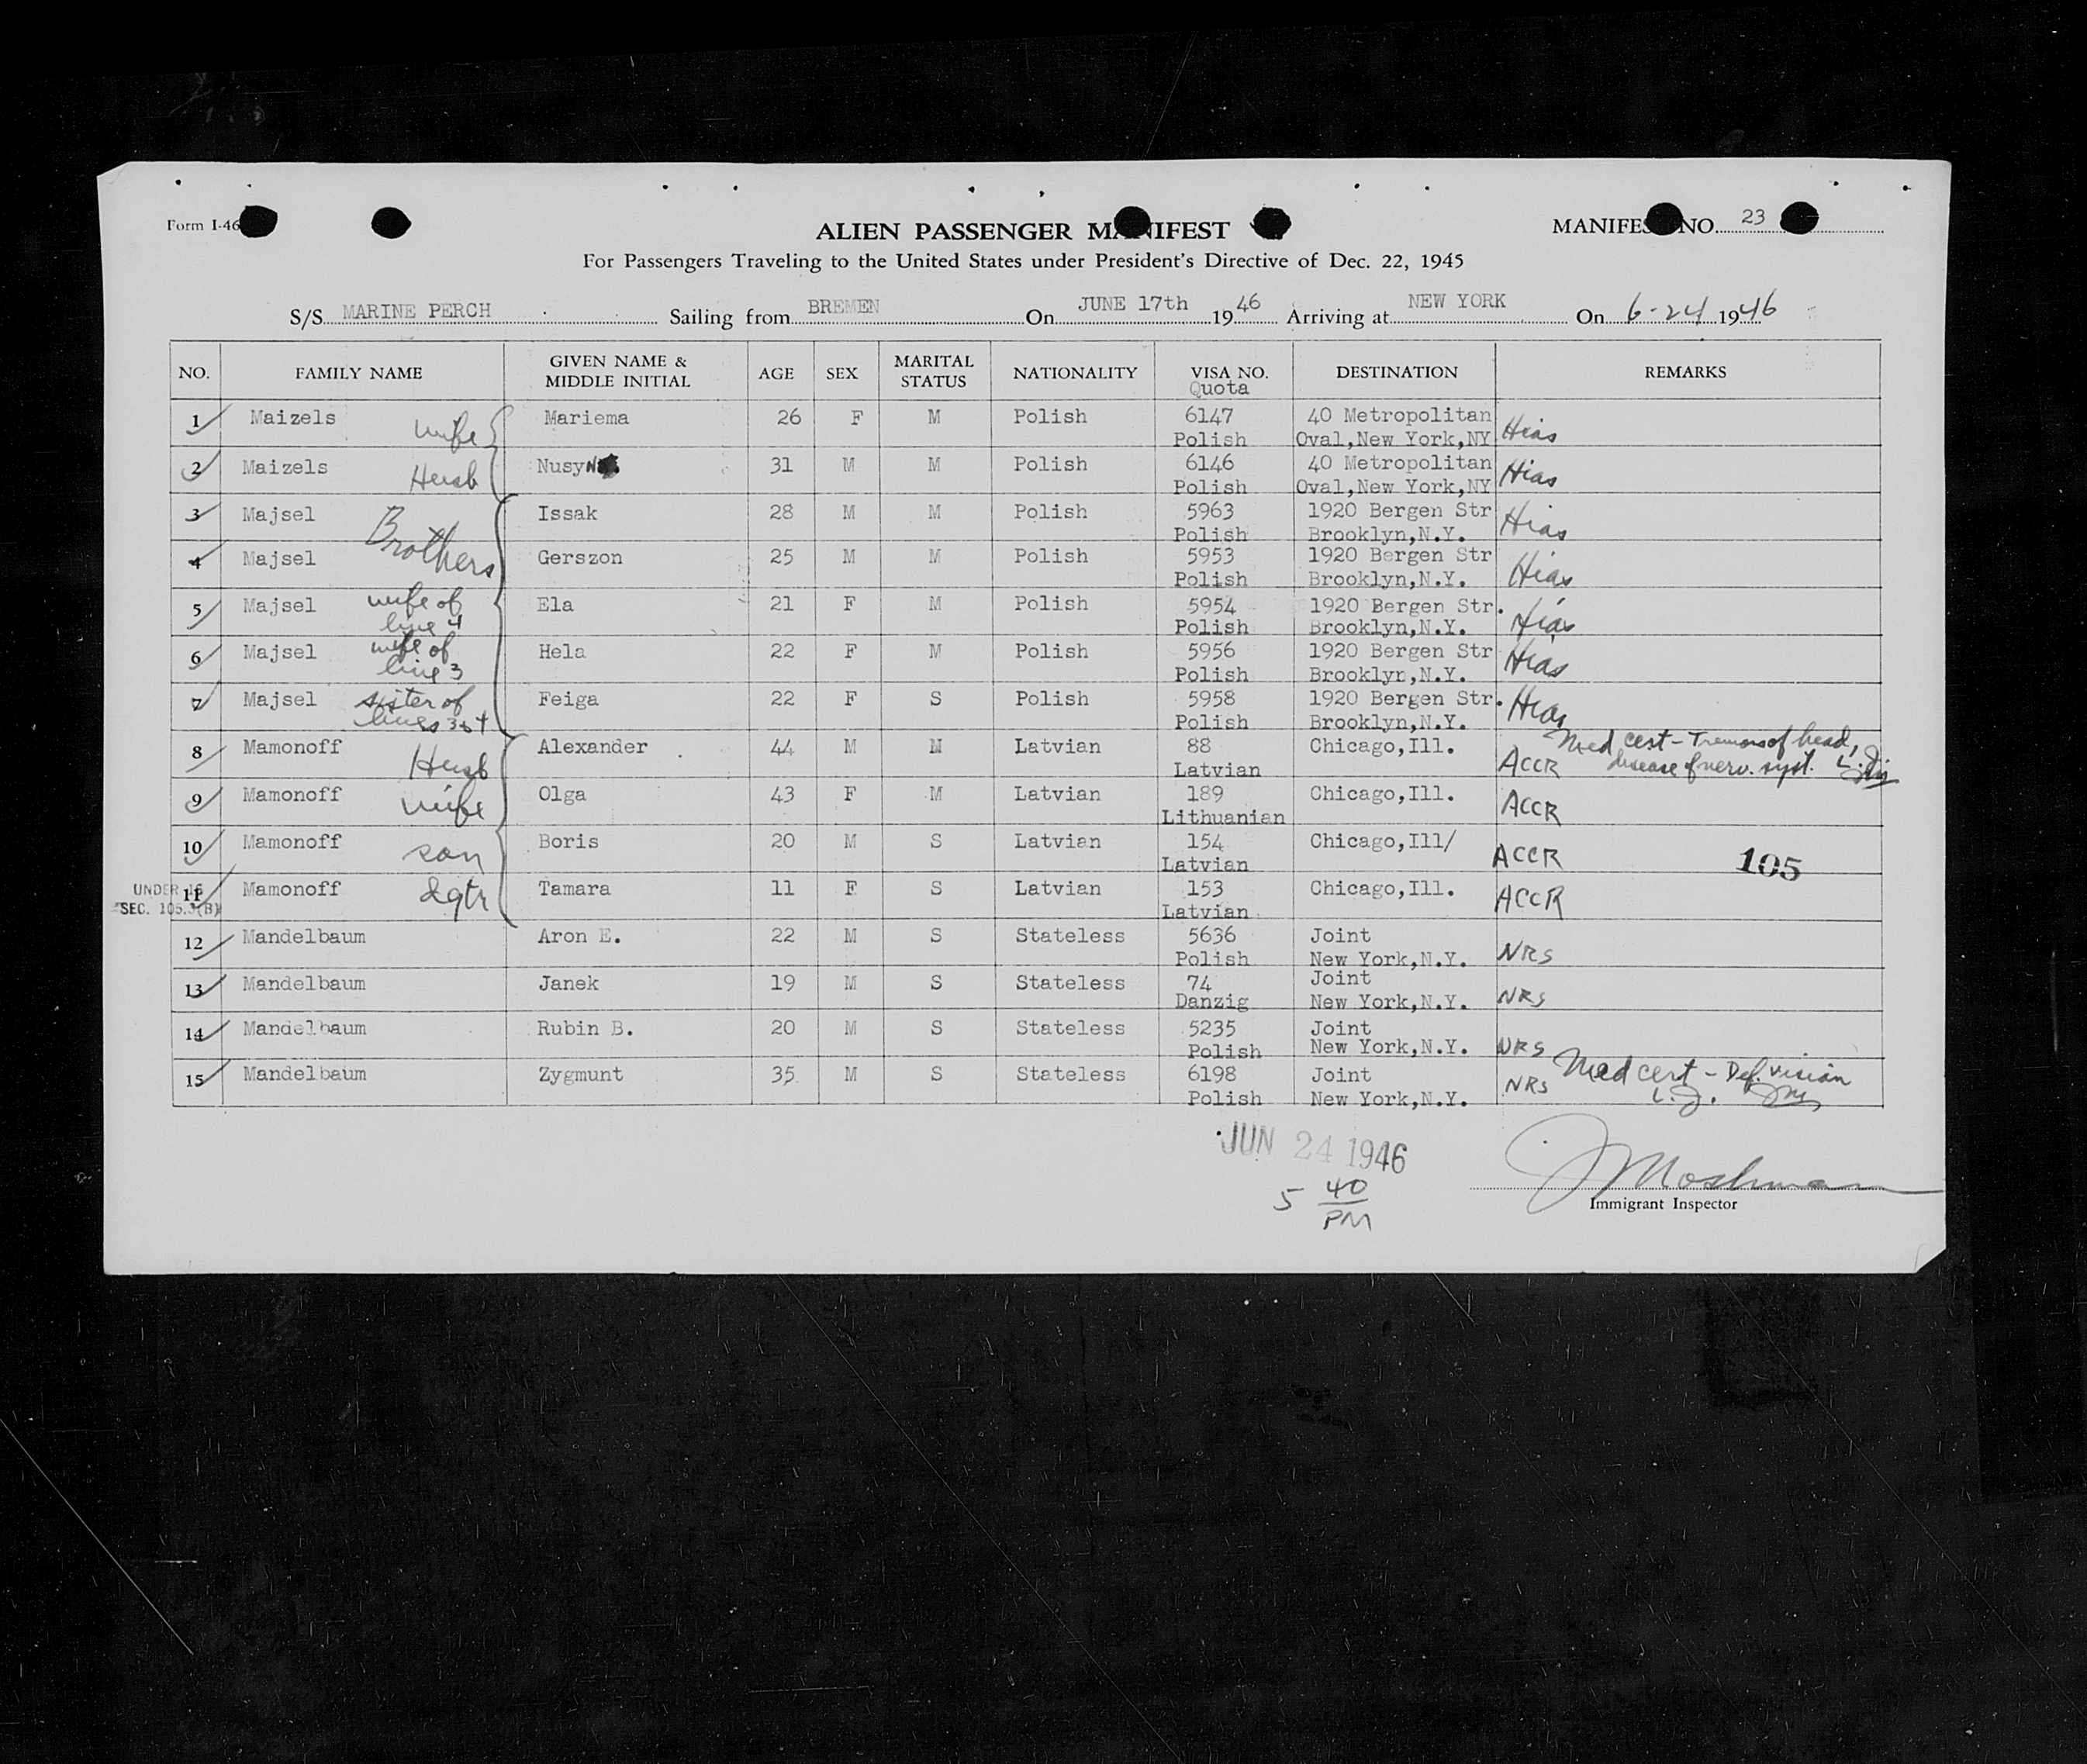 Form I-46
ALIEN PASSENGER MANIFEST
MANIFEST NO. 23
For Passengers Traveling to the United States under President's Directive of Dec. 22, 1945
S/S MARINE PERCH Sailing from BREMEN On JUNE 17th 1946 Arriving at NEW YORK On 6-24 1946
NO. FAMILY NAME GIVEN NAME & MIDDLE INITIAL AGE SEX MARITAL STATUS NATIONALITY VISA NO. Quota DESTINATION REMARKS
1 Maizels wife Mariema 26 F M Polish 6147 40 Metropolitan
Polish Oval,New York,NY Hias
2 Maizels Husb Nusyn 31 M M Polish 6146 40 Metropolitan
Polish Oval,New York,NY Hias
3 Majsel Brothers Issak 28 M M Polish 5963 1920 Bergen Str
Polish Brooklyn,N.Y. Hias
4 Majsel Gerszon 25 M M Polish 5953 1920 Bergen Str
Polish Brooklyn,N.Y. Hias
5 Majsel wife of Ela 21 F M Polish 5954 1920 Bergen Str.
line 4 Polish Brooklyn,N.Y. Hias
6 Majsel wife of Hela 22 F M Polish 5956 1920 Bergen Str
line 3 Polish Brooklyn,N.Y. Hias
7 Majsel sister of Feiga 22 F S Polish 5958 1920 Bergen Str.
lines 3&4 Polish Brooklyn,N.Y. Hias
8 Mamonoff Husb Alexander 44 M M Latvian 88 Chicago,Ill. Med cert - Tremors of head,
Latvian ACCR disease of nerv. syst.
9 Mamonoff wife Olga 43 F M Latvian 189 Chicago,Ill.
Lithuanian ACCR
10 Mamonoff son Boris 20 M S Latvian 154 Chicago,Ill/
Latvian ACCR 105
UNDER 16
11 Mamonoff dgtr Tamara 11 F S Latvian 153 Chicago,Ill.
SEC. 105.3(B) Latvian ACCR
12 Mandelbaum Aron E. 22 M S Stateless 5636 Joint
Polish New York,N.Y. NRS
13 Mandelbaum Janek 19 M S Stateless 74 Joint
Danzig New York,N.Y. NRS
14 Mandelbaum Rubin B. 20 M S Stateless 5235 Joint
Polish New York,N.Y. NRS
15 Mandelbaum Zygmunt 35 M S Stateless 6198 Joint NRS Med cert - Def. vision
Polish New York,N.Y.
JUN 24 1946
5 40 PM
J Moshman
Immigrant Inspector